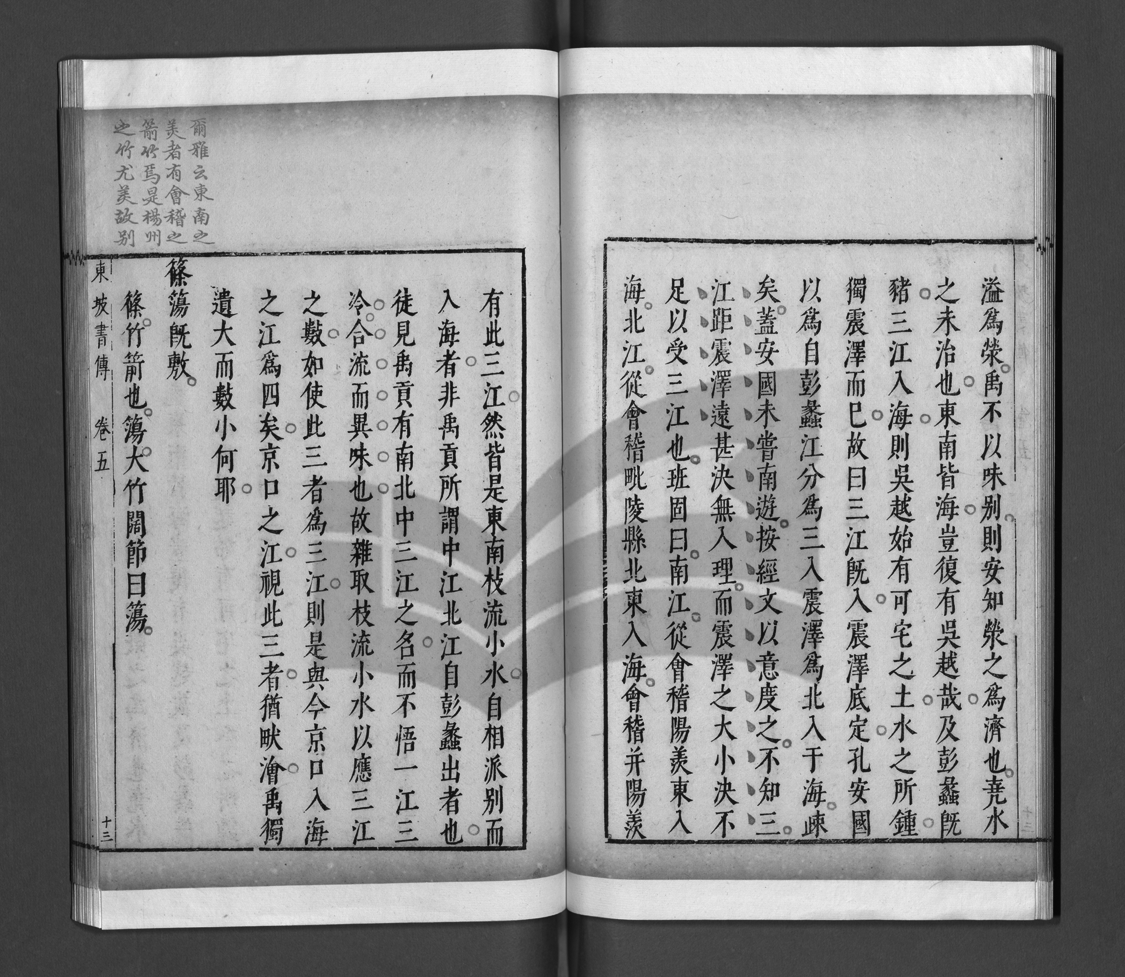 溢爲滎禹不以味别則安知滎之爲濟也堯水
之未治也東南皆海豈復有吳越哉及彭蠡旣
豬三江入海則吳越始有可宅之土水之所鍾
獨震澤而已故曰三江旣入震澤底定孔安國
以爲自彭蠡江分爲三入震澤爲北入于海疎
矣蓋安國未嘗南遊按經文以意度之不知三
江距震澤遠甚決無入理而震澤之大小決不
足以受三江也班固曰南江從會稽陽羨東入
海北江從會稽毗陵縣北東入海會稽并陽羨
有此三江然皆是東南枝流小水自相派别而
入海者非禹貢所謂中江北江自彭蠡出者也
徒見禹貢有南北中三江之名而不悟一江三
泠合流而異味也故雜取枝流小水以應三江
之數如使此三者爲三江則是與今京口入海
之江爲四矣京口之江視此三者猶畎澮禹獨
遺大而數小何耶
篠簜旣敷
篠竹箭也簜大竹闊節曰簜
東坡書傳 卷五
十三
爾雅云東南之
美者有會稽之
箭竹焉是楊州
之竹尤美故别